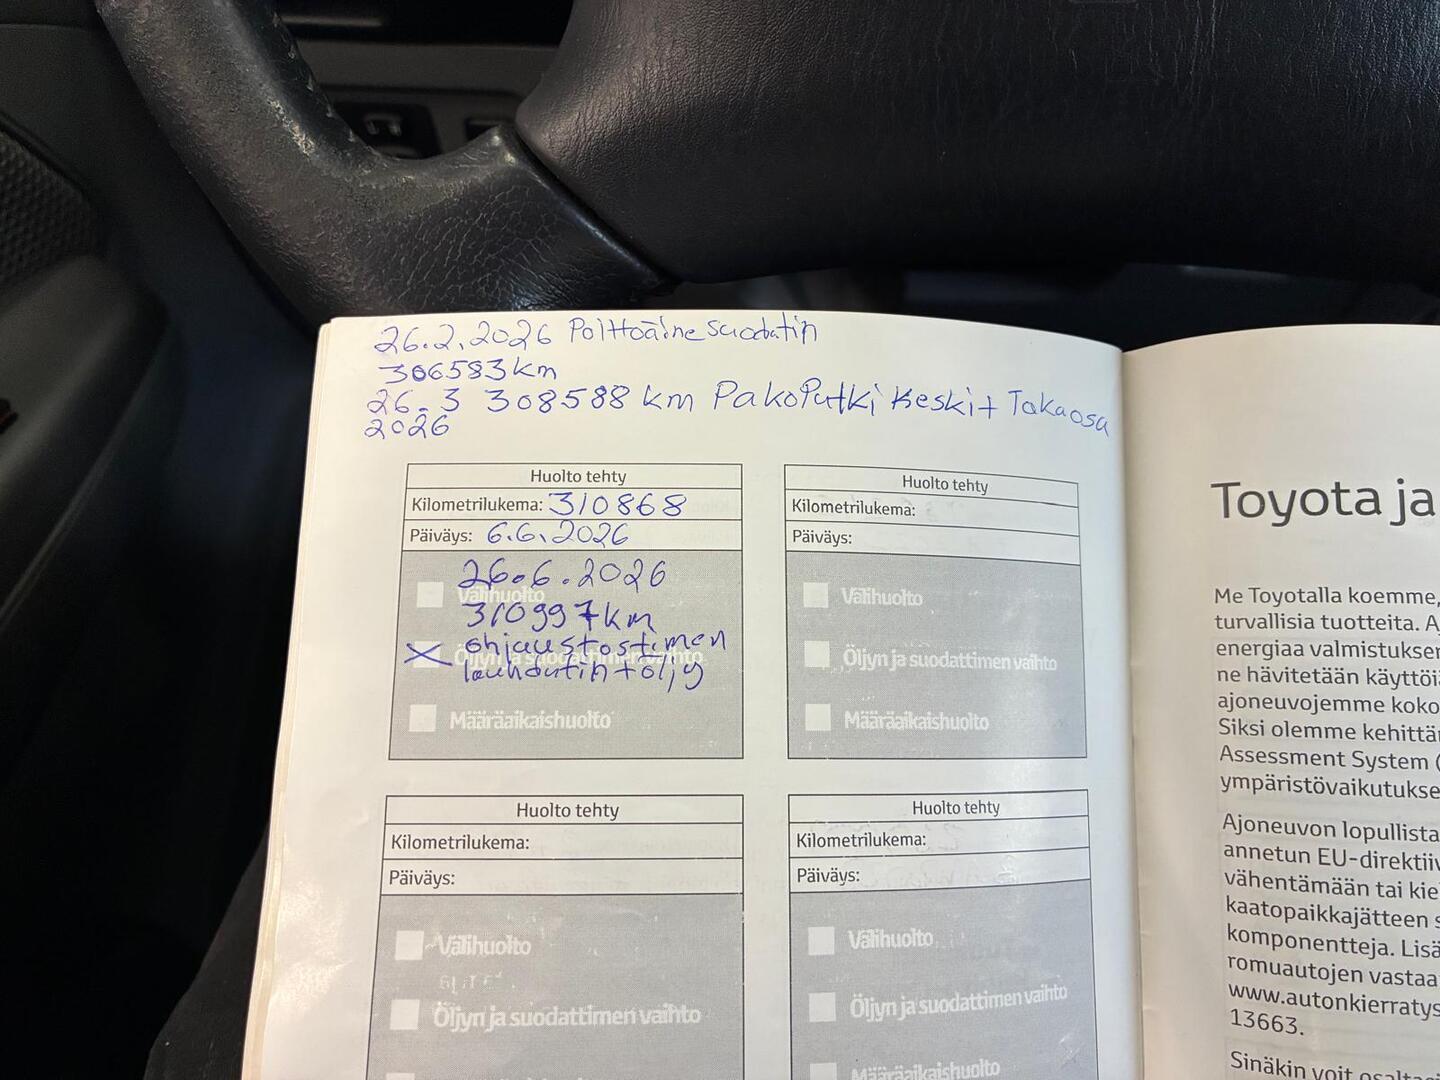 26.2.2026 Polttoäinesuodatin
306583 km
26.3 308588 km Pakoputki keski + Takaosa
2026
Huolto tehty
Kilometrilukema: 310868
Päiväys: 6.6.2026
26.6.2026
Välihuolto
310997 km
ohjaustostimen
Öljyn ja suodattimen vaihto
lauhdutin + öljy
Määräaikaishuolto
Huolto tehty
Kilometrilukema:
Päiväys:
Välihuolto
Öljyn ja suodattimen vaihto
Määräaikaishuolto
Huolto tehty
Kilometrilukema:
Päiväys:
Välihuolto
Öljyn ja suodattimen vaihto
Huolto tehty
Kilometrilukema:
Päiväys:
Välihuolto
Öljyn ja suodattimen vaihto
Määräaikaishuolto
Toyota ja
Me Toyotalla koemme,
turvallisia tuotteita.
energiaa valmistuksen
ne hävitetään
ajoneuvojemme koko
Siksi olemme
Assessment System (
Ajoneuvon lopullista
annetun
vähentämään tai
kaatopaikkajätteen
komponentteja.
romuautojen vastaa
13663.
Sinäkin voit